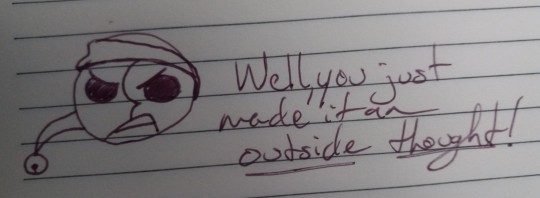 Well, you just
made it an
outside thought!